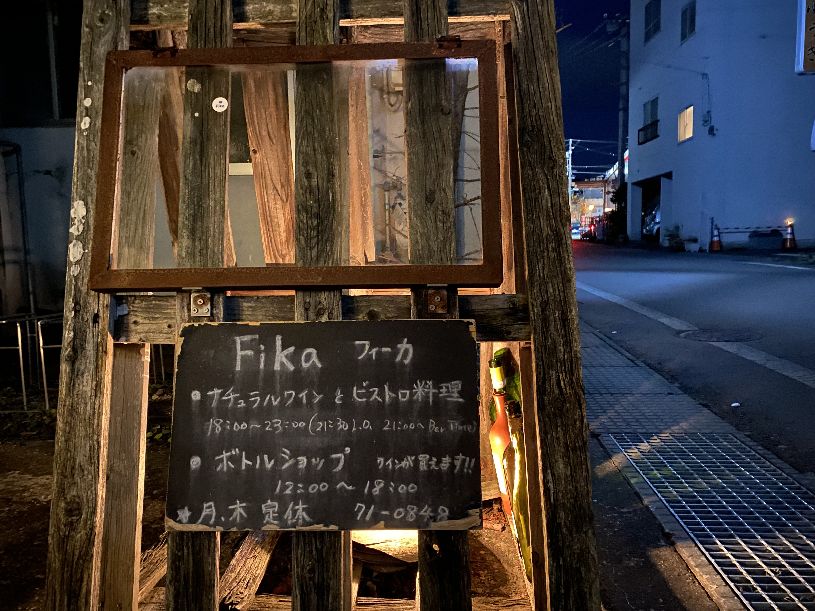 Fika フィーカ
• ナチュラルワインとビストロ料理
18:00～23:00(21:30 L.O. 21:00～Bar Time)
• ボトルショップ ワインが買えます!!
12:00～18:00
★月、木 定休 71-0848